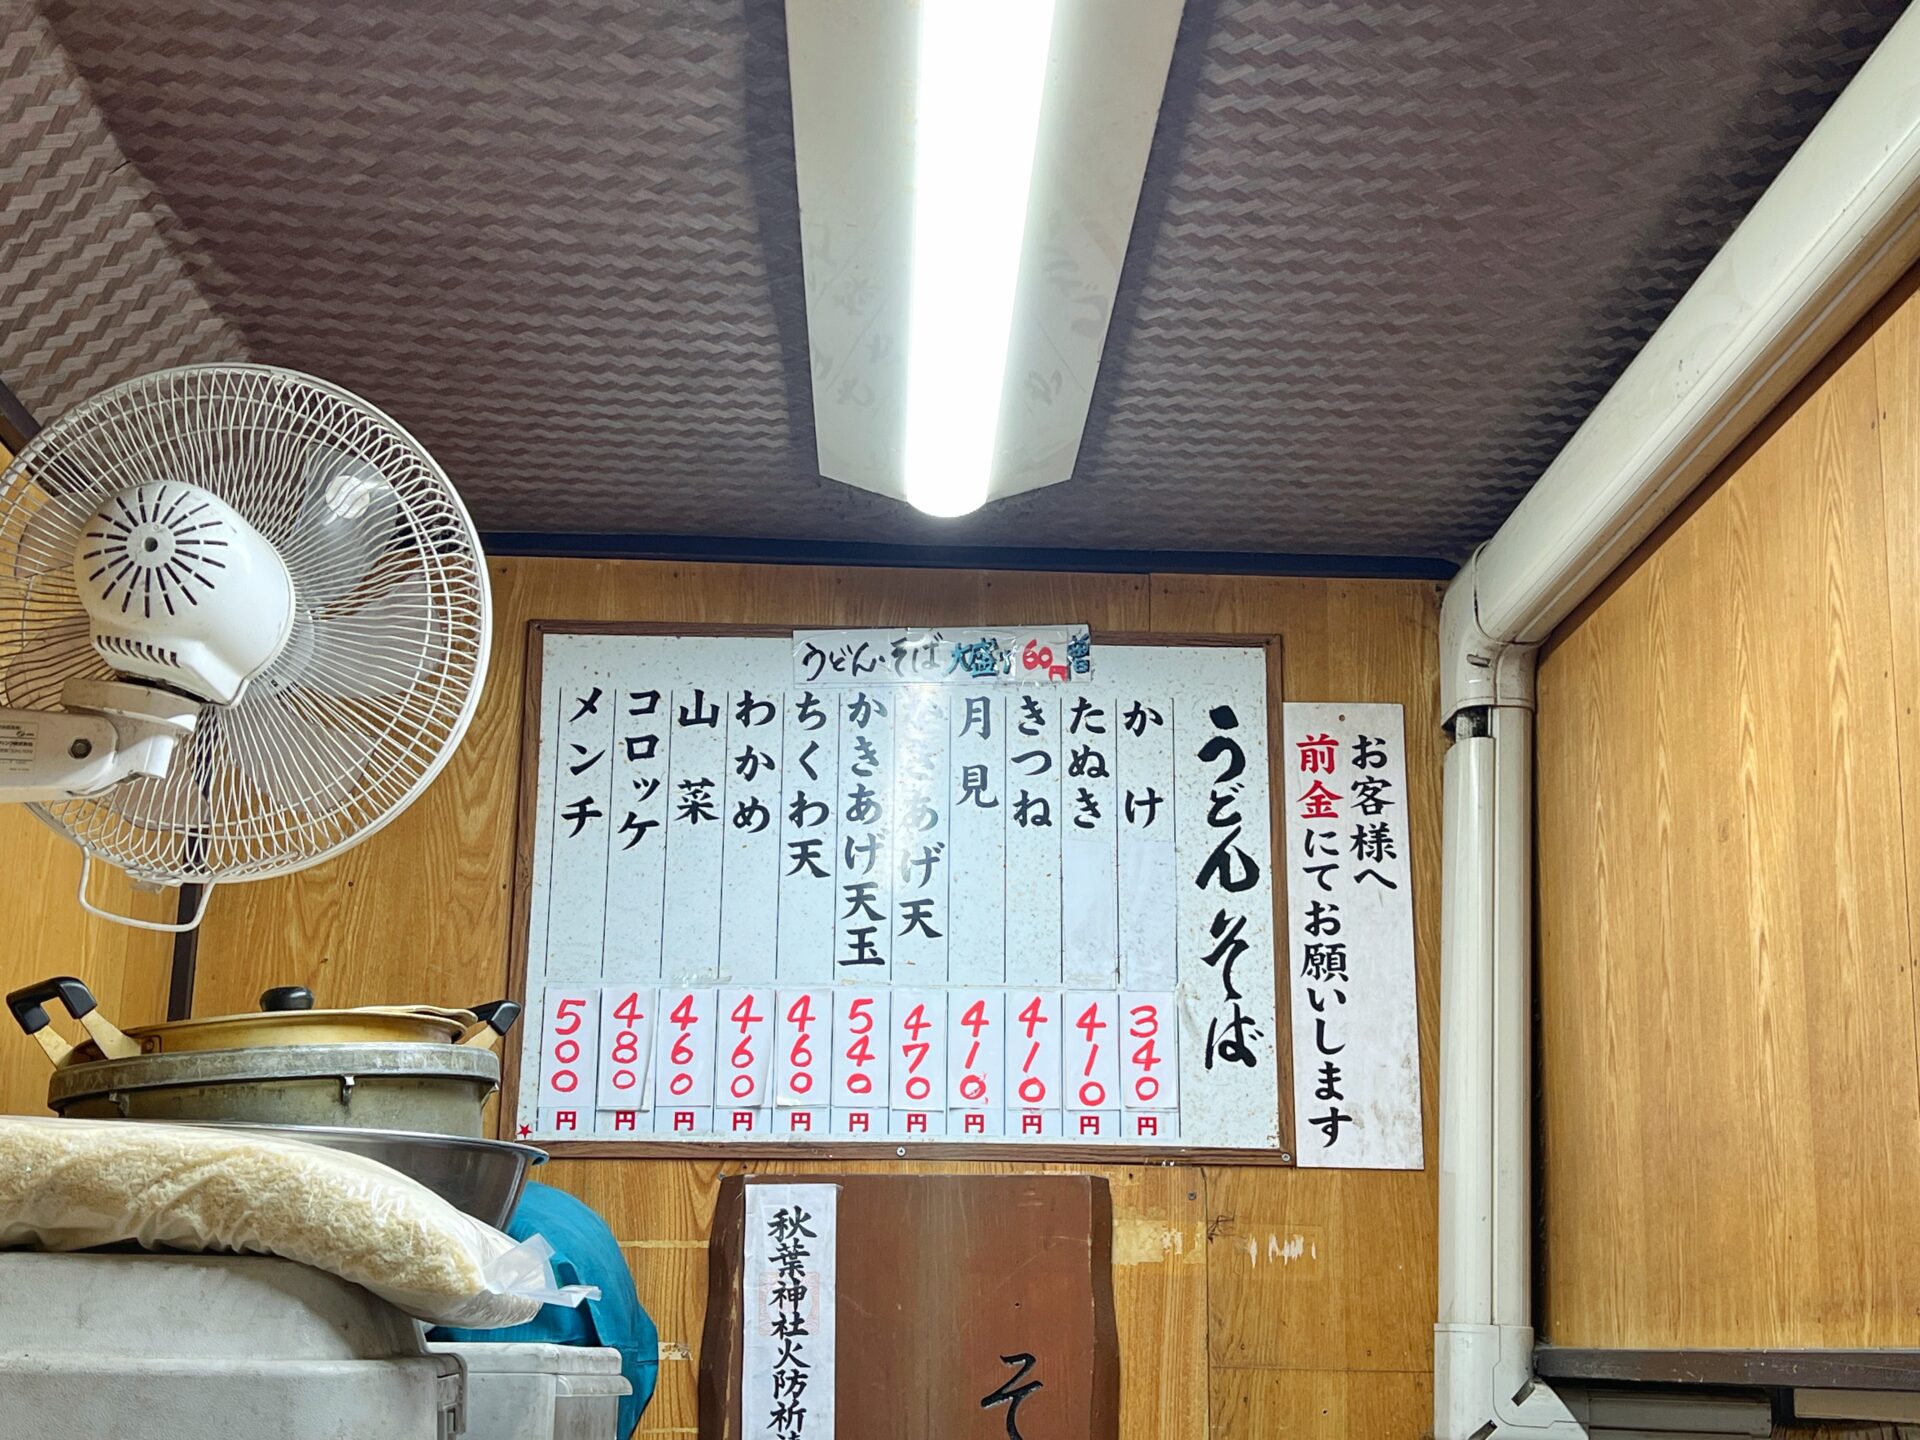 うどん・そば大盛り60円増
うどん そば
かけ 340円
たぬき 410円
きつね 410円
月見 410円
かきあげ天 470円
かきあげ天玉 540円
ちくわ天 460円
わかめ 460円
山菜 460円
コロッケ 480円
メンチ 500円
お客様へ
前金にてお願いします
秋葉神社火防祈
そ